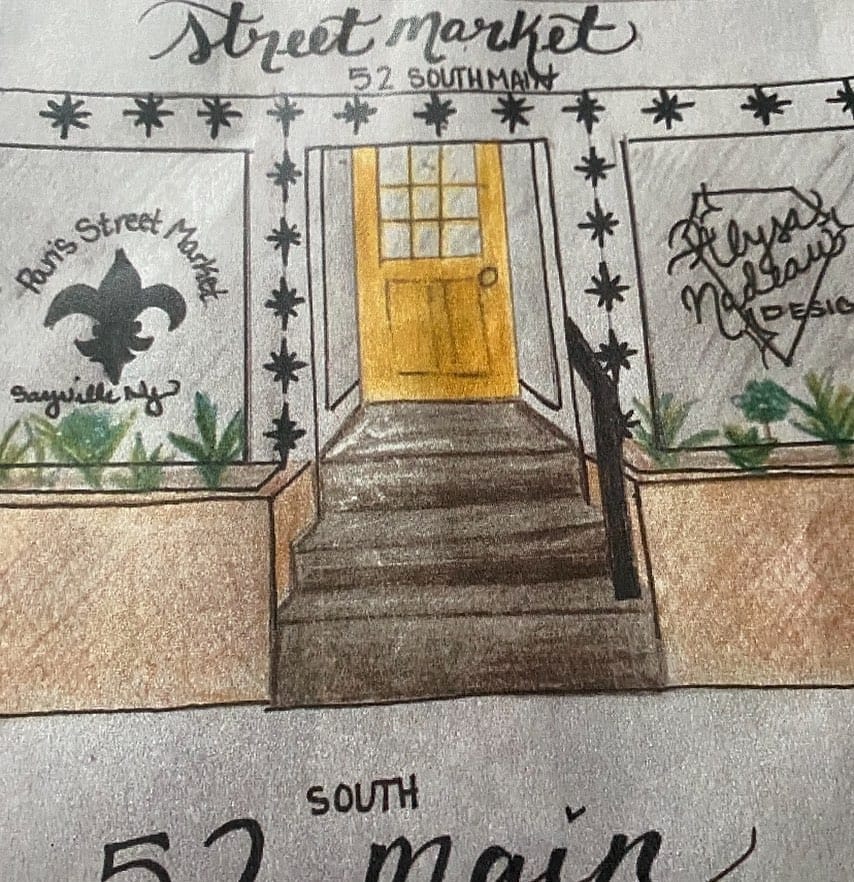 Street Market
52 SOUTH MAIN
Paris Street Market
Sayville Ny
Alysa
DESIG
SOUTH
52 main